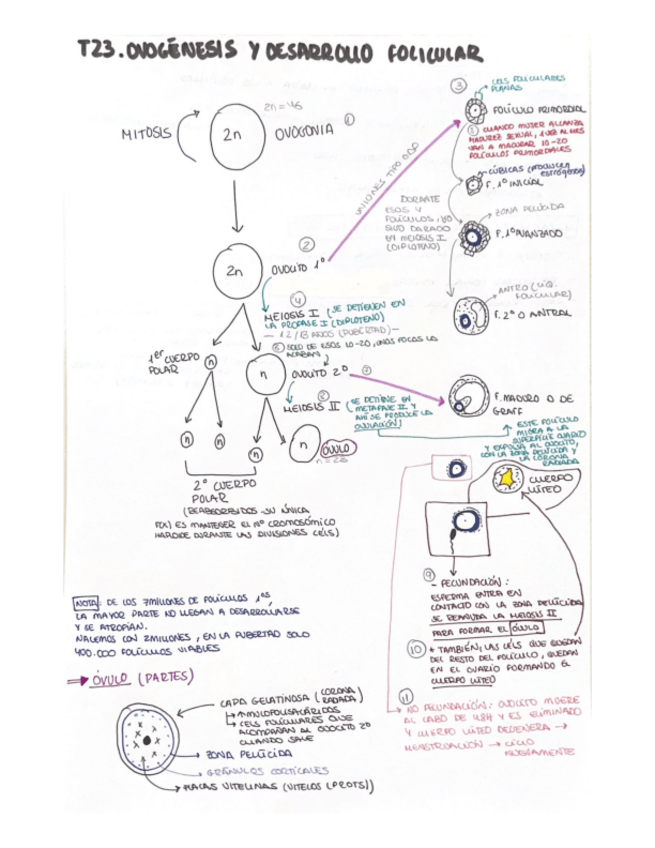 T23. OVOGÉNESIS Y DESARROLLO FOLICULAR
2n=46
MITOSIS
2n
OVOGONIA ①
2n
②
OVOCITO 1º
UNIONES TIPO
④
MEIOSIS I (SE DETIENEN EN
LA PROFASE I (DIPLOTENO)
— 12/13 AÑOS (PUBERTAD) —
⑥ SOLO DE ESOS 10-20, UNOS POCOS LA
ACABAN
1er CUERPO
POLAR
n
n
OVOCITO 2º
⑦
⑧
MEIOSIS II
(SE DETIENE EN
METAFASE II Y
AHÍ SE PRODUCE LA
OVULACIÓN)
n
n
n
n
ÓVULO
2º CUERPO
POLAR
(REABSORBIDOS SU ÚNICA
FX) ES MANTENER EL Nº CROMOSÓMICO
HAPLOIDE DURANTE LAS DIVISIONES CELS)
③
CELS FOLICULARES
PLANAS
FOLÍCULO PRIMORDIAL
⑤ CUANDO MUJER ALCANZA
MADUREZ SEXUAL, 1 VEZ AL MES
VAN A MADURAR 10-20
FOLÍCULOS PRIMORDIALES
CÚBICAS (PRODUCEN
ESTRÓGENOS)
F. 1º INICIAL
DURANTE
ESOS 4
FOLÍCULOS,
SIGUE PARADO
EN MEIOSIS I
(DIPLOTENO)
ZONA PELÚCIDA
F. 1º AVANZADO
ANTRO (LÍQ.
FOLICULAR)
F. 2º O ANTRAL
F. MADURO O DE
GRAFF
ESTE FOLÍCULO
MIGRA A LA
SUPERFICIE OVARIO
Y EXPULSA AL OVOCITO,
CON LA ZONA PELÚCIDA Y
LA CORONA
RADIADA
CUERPO
LÚTEO
⑨
- FECUNDACIÓN:
ESPERMA ENTRA EN
CONTACTO CON LA ZONA PELÚCIDA
SE REANUDA LA MEIOSIS II
PARA FORMAR EL ÓVULO
⑩ * TAMBIÉN, LAS CÉLS QUE QUEDAN
DEL RESTO DEL FOLÍCULO, QUEDAN
EN EL OVARIO FORMANDO EL
CUERPO LÚTEO
⑪
NO FECUNDACIÓN: OVOCITO MUERE
AL CABO DE 48H Y ES ELIMINADO
Y CUERPO LÚTEO DEGENERA →
MENSTRUACIÓN → CICLO
NUEVAMENTE
NOTA: DE LOS 7MILLONES DE FOLÍCULOS 1ºS
LA MAYOR PARTE NO LLEGAN A DESARROLLARSE
Y SE ATROFIAN.
NACEMOS CON 2MILLONES, EN LA PUBERTAD SOLO
400.000 FOLÍCULOS VIABLES
ÓVULO (PARTES)
CAPA GELATINOSA (CORONA
RADIADA)
CELS FOLICULARES QUE
ACOMPAÑAN AL OVOCITO 2º
CUANDO SALE
ZONA PELÚCIDA
GRÁNULOS CORTICALES
PLACAS VITELINAS (VITELOS (PROTS))